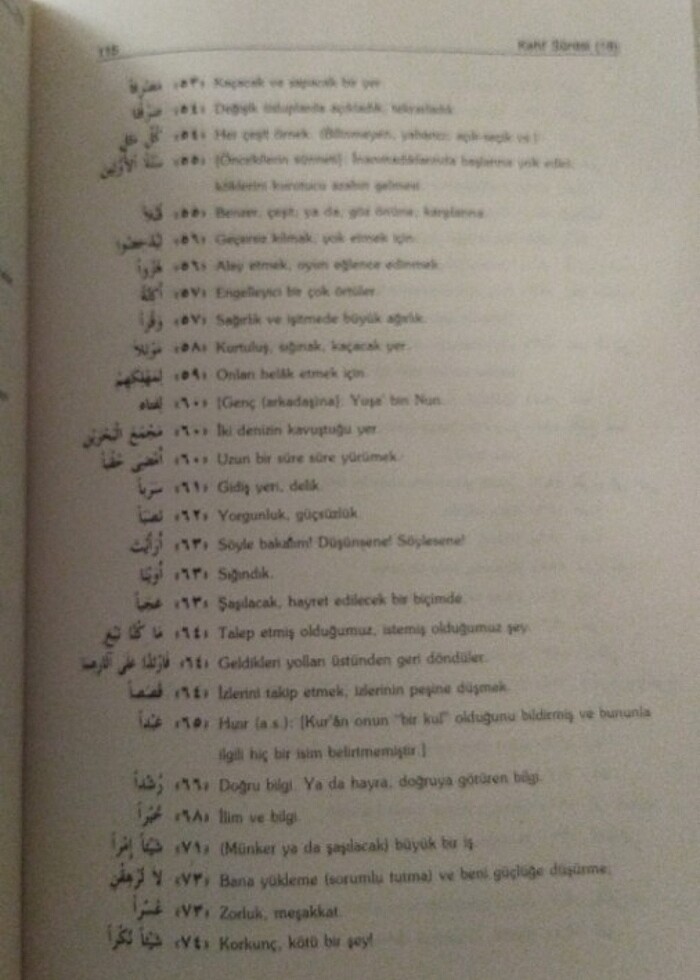 115 Kehf Sûresi (18)
مَصْرِفاً ‹٥٣› Kaçacak ve sapacak bir yer.
صَرَّفْنَا ‹٥٤› Değişik üsluplarda açıkladık, tekrarladık.
‹٥٤› Her çeşit örnek. (Bilinmeyen, yabancı, açık-seçik vs.)
سُنَّةُ الْأَوَّلِينَ ‹٥٥› [Öncekilerin sünneti]: İnanmadıklarında başlarına yok edici,
köklerini kurutucu azabın gelmesi.
قُبُلاً ‹٥٥› Benzer, çeşit; ya da, göz önüne, karşılarına.
لِيُدْحِضُوا ‹٥٦› Geçersiz kılmak, yok etmek için.
هُزُواً ‹٥٦› Alay etmek, oyun eğlence edinmek.
أَكِنَّةً ‹٥٧› Engelleyici bir çok örtüler.
وَقْراً ‹٥٧› Sağırlık ve işitmede büyük ağırlık.
مَوْئِلاً ‹٥٨› Kurtuluş, sığınak, kaçacak yer.
لِمَهْلِكِهِمْ ‹٥٩› Onları helâk etmek için.
لِفَتَاهُ ‹٦٠› [Genç (arkadaşına]. Yuşa' bin Nun.
مَجْمَعَ الْبَحْرَيْنِ ‹٦٠› İki denizin kavuştuğu yer.
أَمْضِيَ حُقُباً ‹٦٠› Uzun bir süre süre yürümek.
سَرَباً ‹٦١› Gidiş yeri, delik.
نَصَباً ‹٦٢› Yorgunluk, güçsüzlük.
أَرَأَيْتَ ‹٦٣› Söyle bakalım! Düşünsene! Söylesene!
أَوَيْنَا ‹٦٣› Sığındık.
عَجَباً ‹٦٣› Şaşılacak, hayret edilecek bir biçimde.
مَا كُنَّا نَبْغِ ‹٦٤› Talep etmiş olduğumuz, istemiş olduğumuz şey.
فَارْتَدَّا عَلَى آثَارِهِمَا ‹٦٤› Geldikleri yolları üstünden geri döndüler.
قَصَصاً ‹٦٤› İzlerini takip etmek, izlerinin peşine düşmek.
عَبْداً ‹٦٥› Hızır (a.s.): [Kur'ân onun "bir kul" olduğunu bildirmiş ve bununla
ilgili hiç bir isim belirtmemiştir.]
رُشْداً ‹٦٦› Doğru bilgi. Ya da hayra, doğruya götüren bilgi.
خُبْراً ‹٦٨› İlim ve bilgi.
شَيْئاً إِمْراً ‹٧١› (Münker ya da şaşılacak) büyük bir iş.
لَا تُرْهِقْنِي ‹٧٣› Bana yükleme (sorumlu tutma) ve beni güçlüğe düşürme.
عُسْراً ‹٧٣› Zorluk, meşakkat.
شَيْئاً نُكْراً ‹٧٤› Korkunç, kötü bir şey!